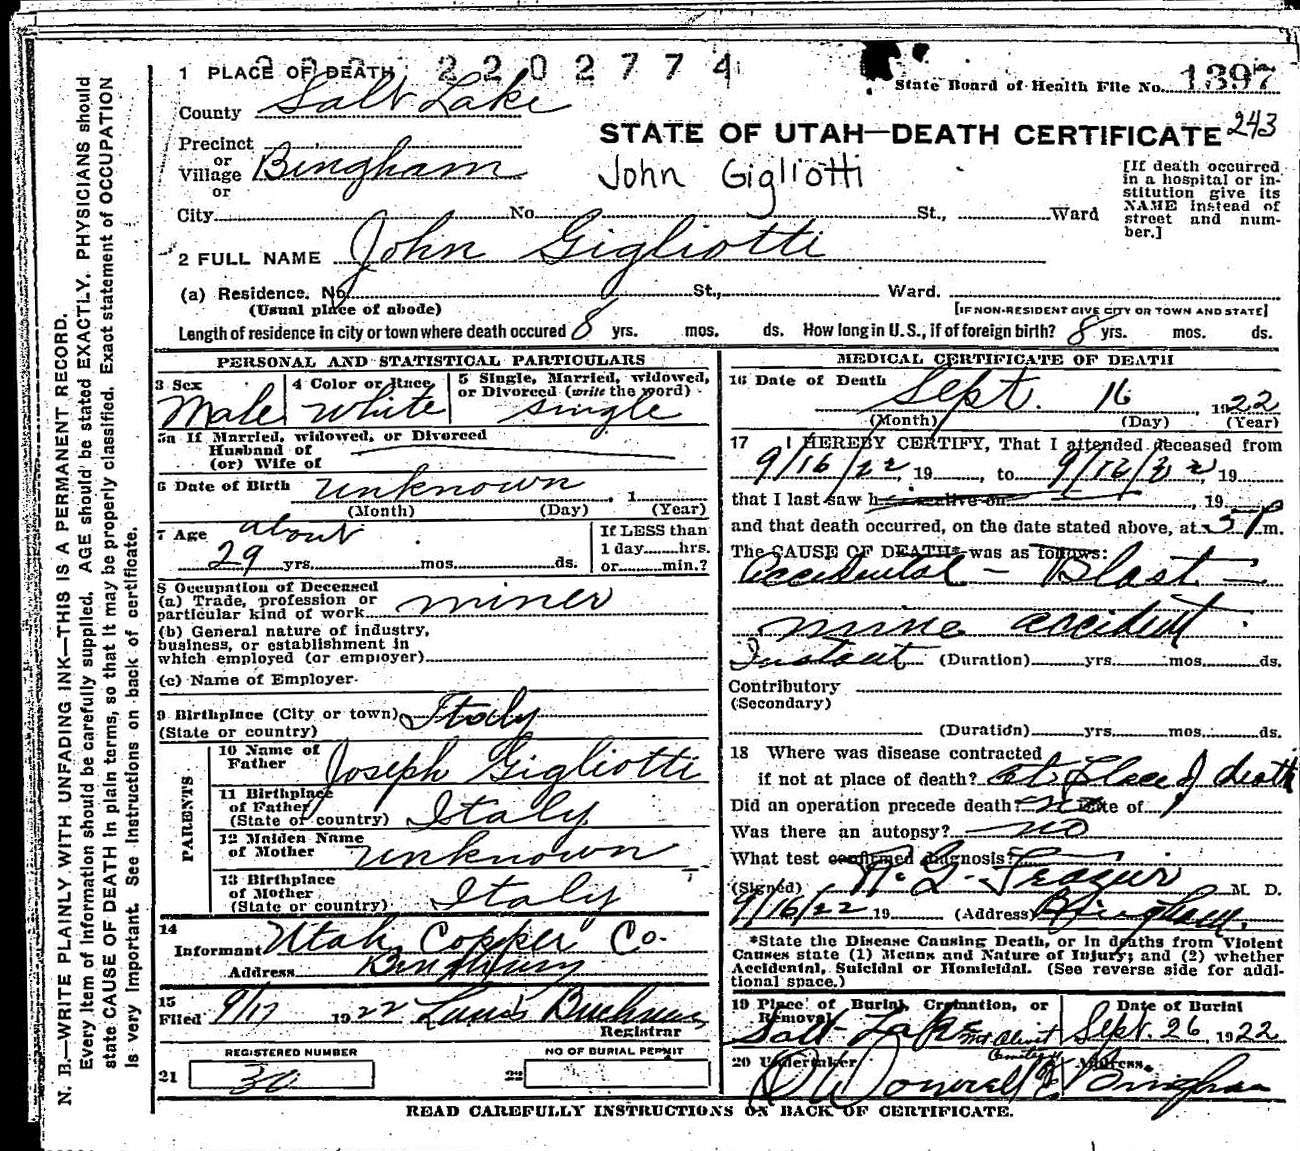 2202774
1 PLACE OF DEATH
State Board of Health File No. 1397
County Salt Lake
243
STATE OF UTAH—DEATH CERTIFICATE
Precinct
or
Village Bingham
or
John Gigliotti
[If death occurred in a hospital or in-
stitution give its
NAME instead of
street and num-
ber.]
City No. St., Ward
2 FULL NAME John Gigliotti
(a) Residence. No. St., Ward.
(Usual place of abode) [IF NON-RESIDENT GIVE CITY OR TOWN AND STATE]
Length of residence in city or town where death occured 8 yrs. mos. ds. How long in U.S., if of foreign birth? 8 yrs. mos. ds.
PERSONAL AND STATISTICAL PARTICULARS
3 Sex Male
4 Color or Race White
5 Single, Married, widowed,
or Divorced (write the word) Single
5a If Married, widowed, or Divorced
Husband of
(or) Wife of
6 Date of Birth unknown, 1
(Month) (Day) (Year)
7 Age about
29 yrs. mos. ds.
If LESS than
1 day hrs.
or min.?
8 Occupation of Deceased
(a) Trade, profession or
particular kind of work miner
(b) General nature of industry,
business, or establishment in
which employed (or employer)
(c) Name of Employer
9 Birthplace (City or town) Italy
(State or country)
PARENTS
10 Name of
Father Joseph Gigliotti
11 Birthplace
of Father
(State or country) Italy
12 Maiden Name
of Mother unknown
13 Birthplace
of Mother
(State or country) Italy
14
Informant Utah Copper Co.
Address
15
Filed 9/17 1922
Registrar
REGISTERED NUMBER
21 30
NO OF BURIAL PERMIT
22
MEDICAL CERTIFICATE OF DEATH
16 Date of Death Sept. 16, 1922
(Month) (Day) (Year)
17 I HEREBY CERTIFY, That I attended deceased from
9/16/22, 19, to 9/16/22, 19
that I last saw h alive on, 19
and that death occurred, on the date stated above, at 5 P m.
The CAUSE OF DEATH* was as follows:
Accidental — Blast —
mine accident.
Instant (Duration) yrs. mos. ds.
Contributory
(Secondary)
(Duration) yrs. mos. ds.
18 Where was disease contracted
if not at place of death? at place of death
Did an operation precede death? no Date of
Was there an autopsy? no
What test confirmed diagnosis?
(Signed) M. D.
9/16/22 19 (Address) Bingham.
*State the Disease Causing Death, or in deaths from Violent
Causes state (1) Means and Nature of Injury; and (2) whether
Accidental, Suicidal or Homicidal. (See reverse side for addi-
tional space.)
19 Place of Burial, Cremation, or
Removal
Salt Lake Mt Olivet
Cemetery
Date of Burial
Sept. 26, 1922
20 Undertaker
Address
Bingham
READ CAREFULLY INSTRUCTIONS ON BACK OF CERTIFICATE.
N. B.—WRITE PLAINLY WITH UNFADING INK—THIS IS A PERMANENT RECORD.
Every item of information should be carefully supplied. AGE should be stated EXACTLY. PHYSICIANS should
state CAUSE OF DEATH in plain terms, so that it may be properly classified. Exact statement of OCCUPATION
is very important. See instructions on back of certificate.